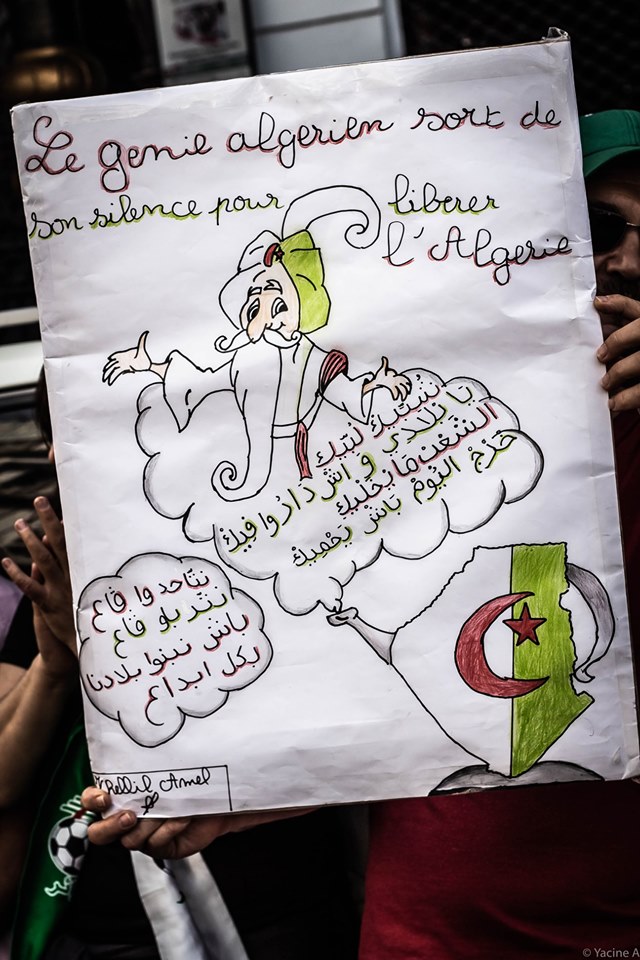 Le genie algerien sort de
son silence pour liberer
l'Algerie
شبيك لبيك
يا بلادي واش داروا فيك
الشعب ما يخليك
خرج اليوم باش يحميك
نتاحدوا قاع
قاع
باش نبنوا بلادنا
بكل ابداع
Amel
© Yacine A